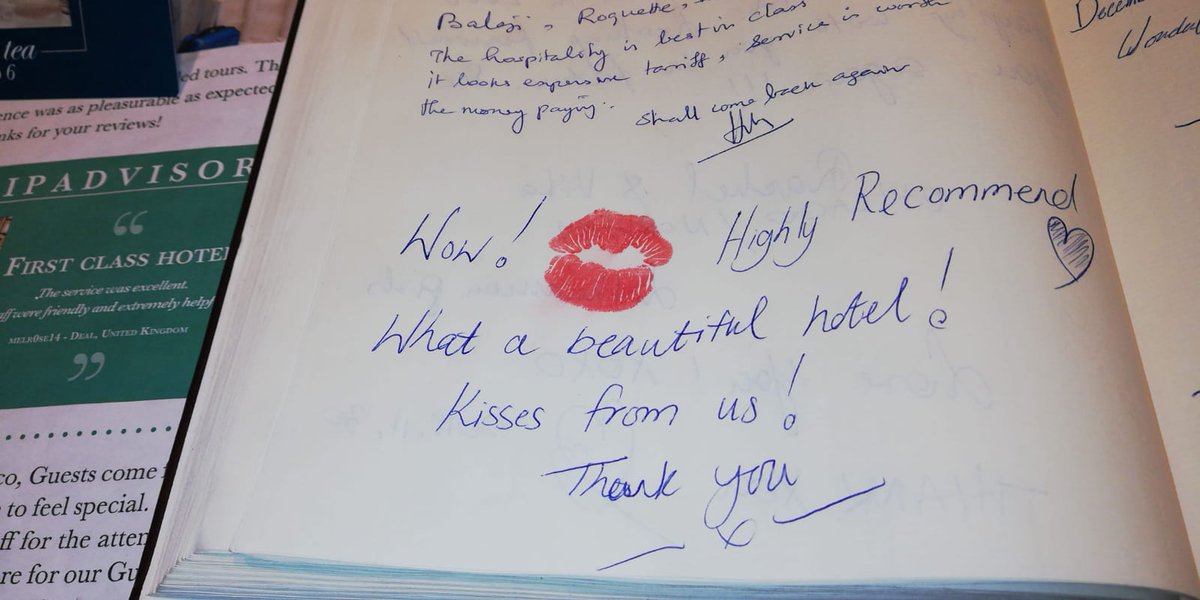 tea
6
ed tours. Th
ence was as pleasurable as expected
nks for your reviews!
IPADVISOR
“
FIRST CLASS HOTE
The service was excellent.
aff were friendly and extremely helpf
MELR0SE14 - DEAL, UNITED KINGDOM
”
co, Guests come
to feel special.
ff for the atten
re for our Gu
Balaji, Roquette,
The hospitality is best in class
it looks expensive tarriff, service is worth
the money paying..
shall come back again
Wow! Highly Recommend
What a beautiful hotel!
Kisses from us!
Thank you
x
Decem
Wonde